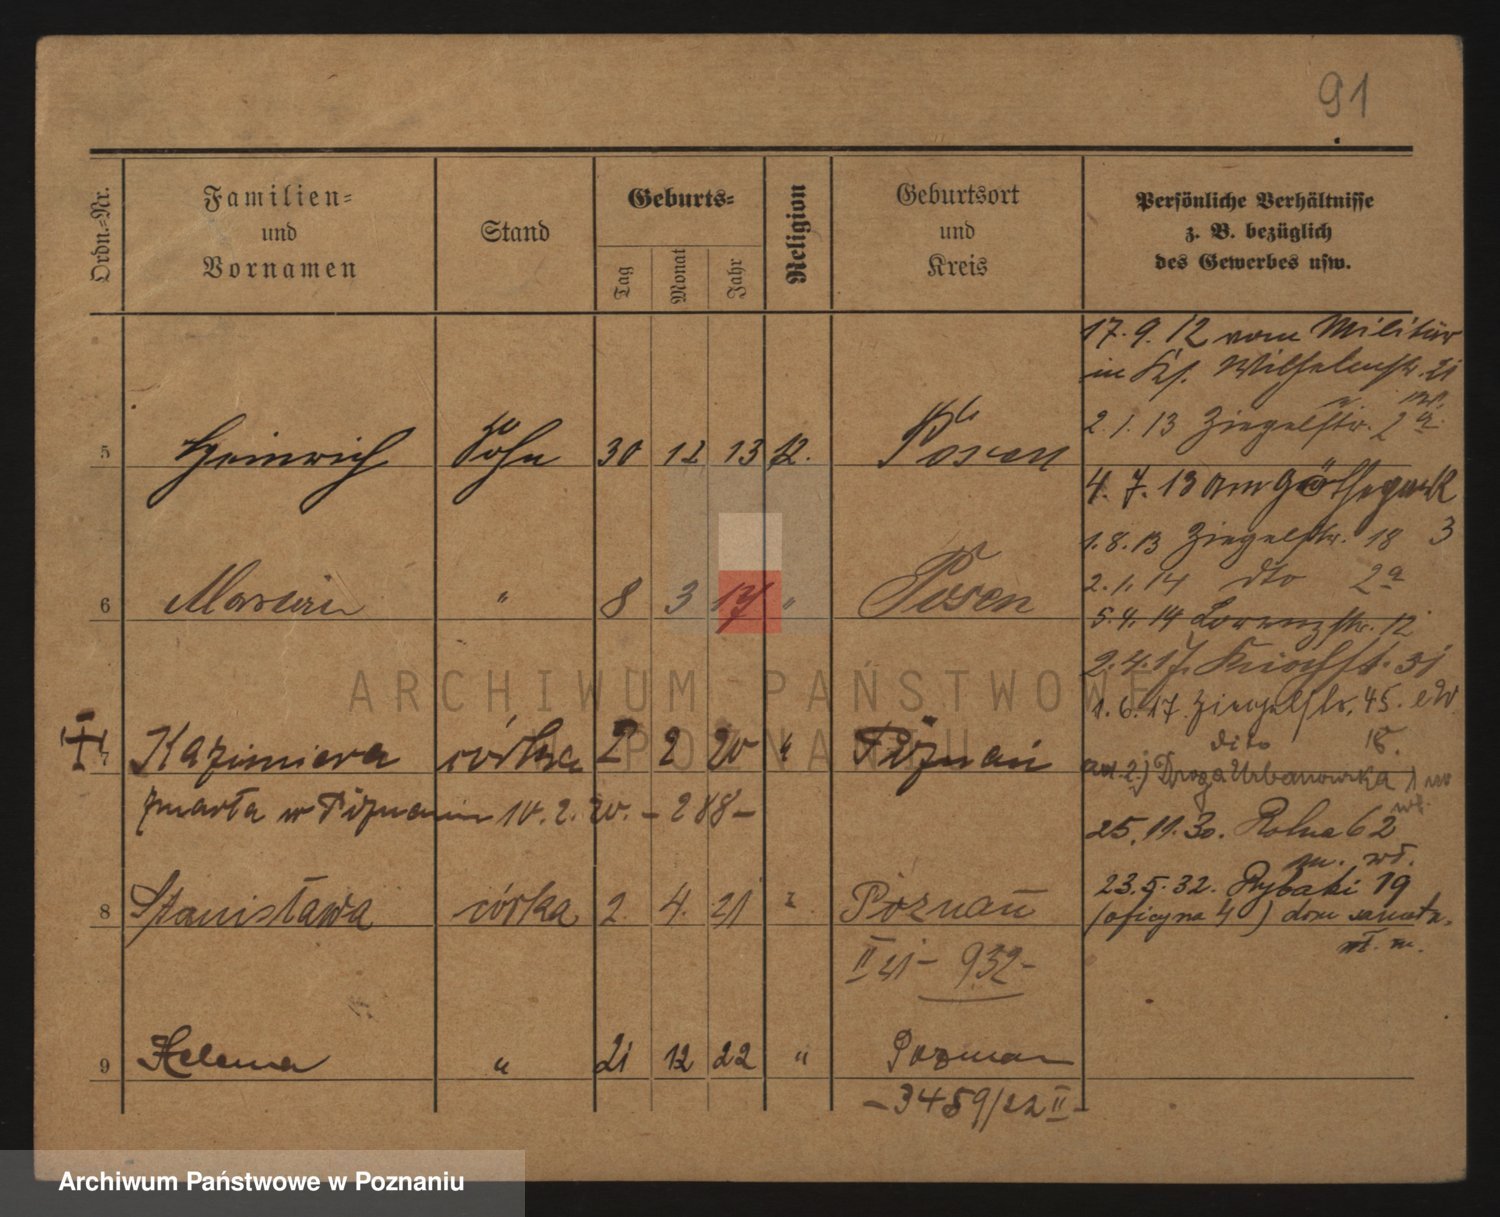 91
Ordn.-Nr.
Familien-
und
Vornamen
Stand
Geburts-
Tag
Monat
Jahr
Religion
Geburtsort
und
Kreis
Persönliche Verhältnisse
z. B. bezüglich
des Gewerbes usw.
5 Heinrich Sohn 30 12 13 Posen
6 " 8 3 17 " Posen
7 Kazimiera córka 2 2 20 " Poznań
zmarła w Poznaniu 10. 2. 20. – 288 –
8 Stanisława córka 2. 4. 21 Poznań
II 21 – 932 –
9 Helena " 21 12 22 " Poznań
– 3459/22 II –
17. 9. 12 vom Militär
in Wilhelmstr. 21
2. 1. 13 Ziegelstr. 2 a.
4. 7. 13 Am Göthepark
3
1. 8. 13 Ziegelstr. 18
2. 1. 14 dto 2a
5. 4. 14 Lorenzstr. 12
2. 4. 17. 31
1. 6. 17. Ziegelstr. 45.
dito 18.
ad. 2.) Droga Urbanowska 1
25. 11. 30. Rolna 62
m. wł.
23. 5. 32. Rybaki 19
(oficyna 4) dom
wł. m.
ARCHIWUM PAŃSTWOWE
W POZNANIU
Archiwum Państwowe w Poznaniu